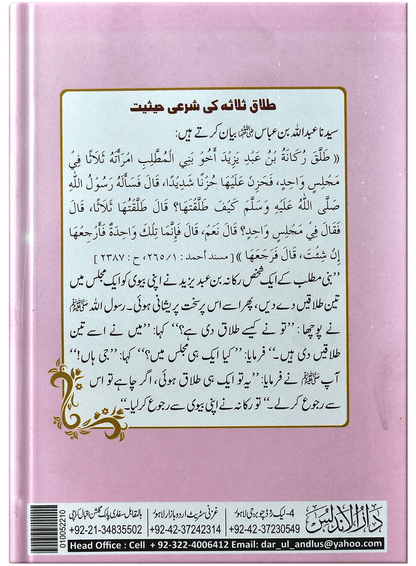 طلاق ثلاثہ کی شرعی حیثیت
سیدنا عبداللہ بن عباس رضی اللہ عنہما بیان کرتے ہیں:
« طَلَّقَ رُكَانَةُ بْنُ عَبْدِ يَزِيْدَ أَخُوْ بَنِي الْمُطَّلِبِ امْرَأَتَهُ ثَلَاثًا فِيْ
مَجْلِسٍ وَاحِدٍ، فَحَزِنَ عَلَيْهَا حُزْنًا شَدِيْدًا، قَالَ فَسَأَلَهُ رَسُوْلُ اللّٰهِ
صَلَّى اللّٰهُ عَلَيْهِ وَسَلَّمَ كَيْفَ طَلَّقْتَهَا؟ قَالَ طَلَّقْتُهَا ثَلَاثًا، قَالَ
فَقَالَ فِيْ مَجْلِسٍ وَاحِدٍ؟ قَالَ نَعَمْ، قَالَ فَإِنَّمَا تِلْكَ وَاحِدَةٌ فَأَرْجِعْهَا
إِنْ شِئْتَ، قَالَ فَرَجَعَهَا » [ مسند أحمد : ٢٦٥/١، ح : ٢٣٨٧ ]
”بنی مطلب کے ایک شخص رکانہ بن عبد یزید نے اپنی بیوی کو ایک مجلس میں
تین طلاقیں دے دیں، پھر اسے اس پر سخت پریشانی ہوئی۔ رسول اللہ ﷺ
نے پوچھا: ”تو نے کیسے طلاق دی ہے؟“ کہا: ”میں نے اسے تین
طلاقیں دی ہیں۔“ فرمایا: ”کیا ایک ہی مجلس میں؟“ کہا: ”جی ہاں!“
آپ ﷺ نے فرمایا: ”یہ تو ایک ہی طلاق ہوئی، اگر چاہے تو اس
سے رجوع کر لے۔“ تو رکانہ نے اپنی بیوی سے رجوع کر لیا۔“
دارالاندلس
4- لیک روڈ چوبرجی لاہور
+92-42-37230549
غزنی سٹریٹ اردو بازار لاہور
+92-42-37242314
بالمقابل سفاری پارک گلشن اقبال کراچی
+92-21-34835502
Head Office : Cell + 92-322-4006412 Email: dar_ul_andlus@yahoo.com
010052210